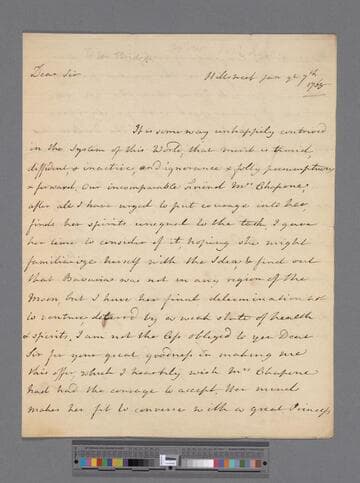 Dear Sir
Hillstreet Jan ye 7th
It is some way unhappily contrived
in the System of this World, that merit is timid
diffident & inactive, and ignorance & folly presumptuous
& forward. Our incomparable Friend Mrs Chapone,
after all I have urged to put courage into her,
finds her spirits unequal to the task, I gave
her time to consider of it, hoping she might
familiarize herself with the Idea, & find out
that Bavaria was not in any region of the
Moon, but I have her final determination not
to venture, deterred by a weak state of health
& spirits, I am not the less obliged to you Dear
Sir for your great goodness in making me
this offer, which I heartily wish Mrs Chapone
had had the courage to accept. Her mind
makes her fit to converse with a great Princess